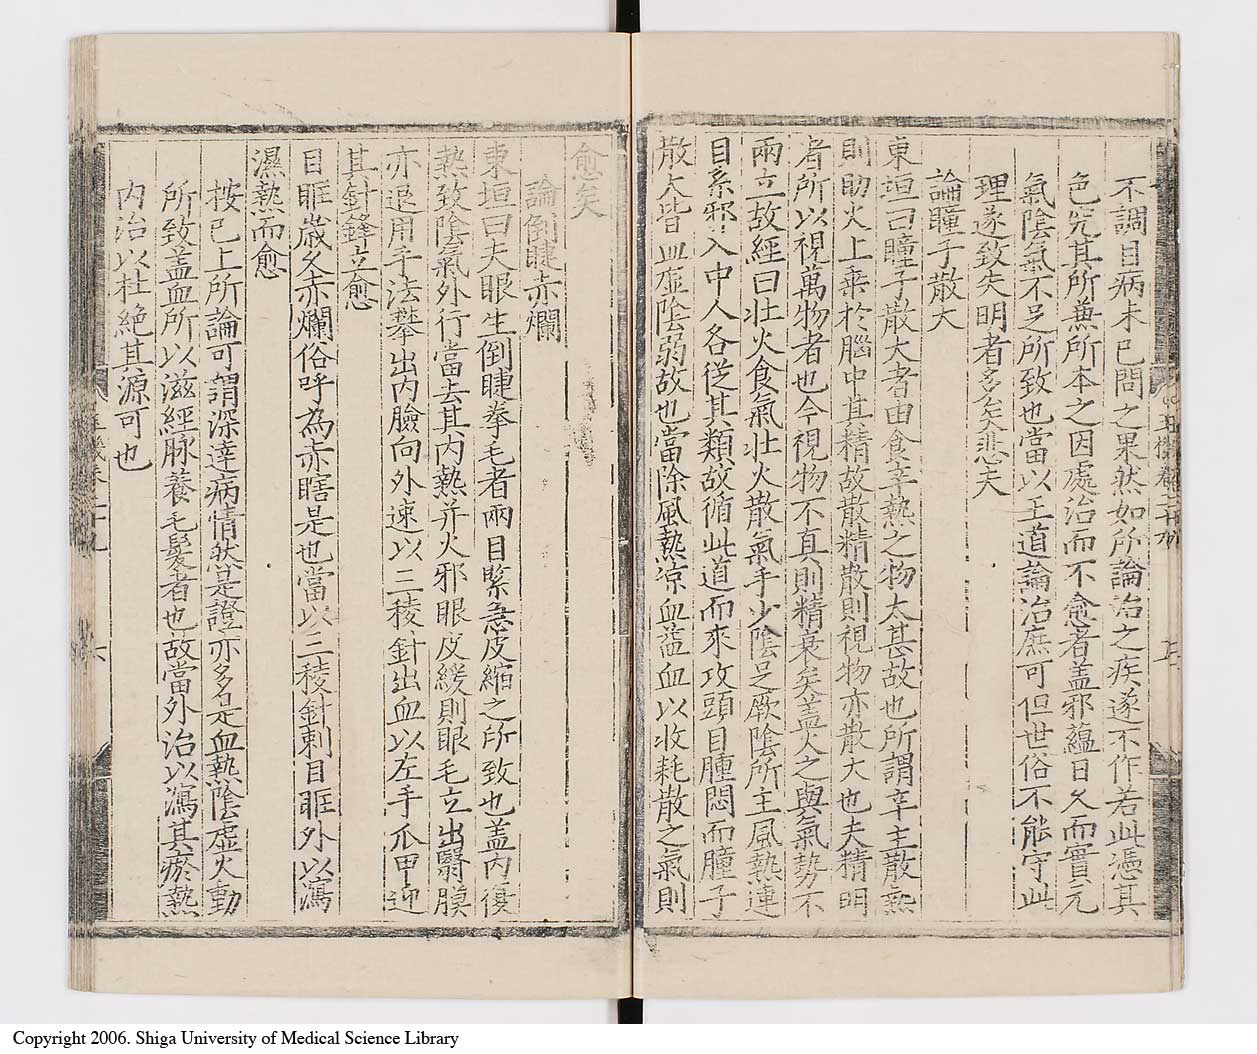 不調目病未已問之果然如所論治之疾遂不作若此憑其
色究其所兼所本之因處治而不愈者盖邪蘊日久而實元
氣陰氣不足所致也當以王道論治庶可但世俗不能守此
理遂致失明者多矣悲夫
論瞳子散大
東垣曰瞳子散大者由食辛熱之物太甚故也所謂辛主散熱
則助火上乗於腦中其精故散精散則視物亦散大也夫精明
者所以視萬物者也今視物不真則精衰矣盖火之與氣勢不
兩立故經曰壮火食氣壮火散氣手少陰足厥陰所主風熱連
目系邪入中人各従其類故循此道而來攻頭目腫悶而瞳子
散大皆血虚陰弱故也當除風熱凉血益血以收耗散之氣則
愈矣
論倒睫赤爛
東垣曰夫眼生倒睫拳毛者兩目緊急皮縮之所致也盖内復
熱致陰氣外行當去其内熱并火邪眼皮緩則眼毛立出翳膜
亦退用手法攀出内瞼向外速以三稜針出血以左手爪甲迎
其針鋒立愈
目眶歳久赤爛俗呼為赤瞎是也當以三稜針刺目眶外以瀉
濕熱而愈
按已上所論可謂深達病情然是證亦多是血熱陰虚火動
所致盖血所以滋經脉養毛髪者也故當外治以瀉其瘀熱
内治以杜絶其源可也
六
Copyright 2006. Shiga University of Medical Science Library